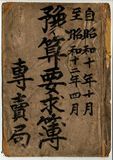 自昭和十年十月
至昭和十二年四月
豫算要求簿
專賣局